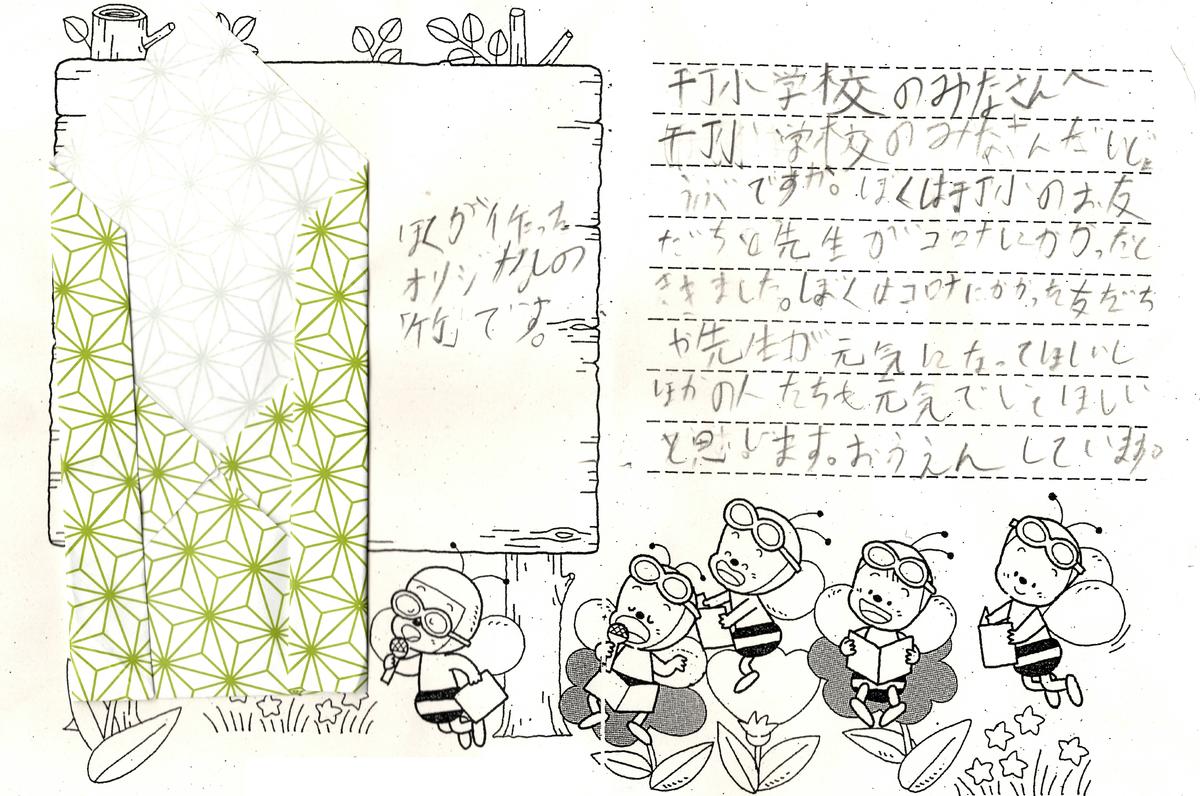 ぼくが作った
オリジナルの
竹です。
千丁小学校のみなさんへ
千丁小学校のみなさんだいじょ
うぶですか。ぼくは千丁小のお友
だちと先生がコロナにかかったと
ききました。ぼくはコロナにかかった友だち
や先生が元気になってほしいし
ほかの人たちも元気でいてほしい
と思います。おうえんしています。